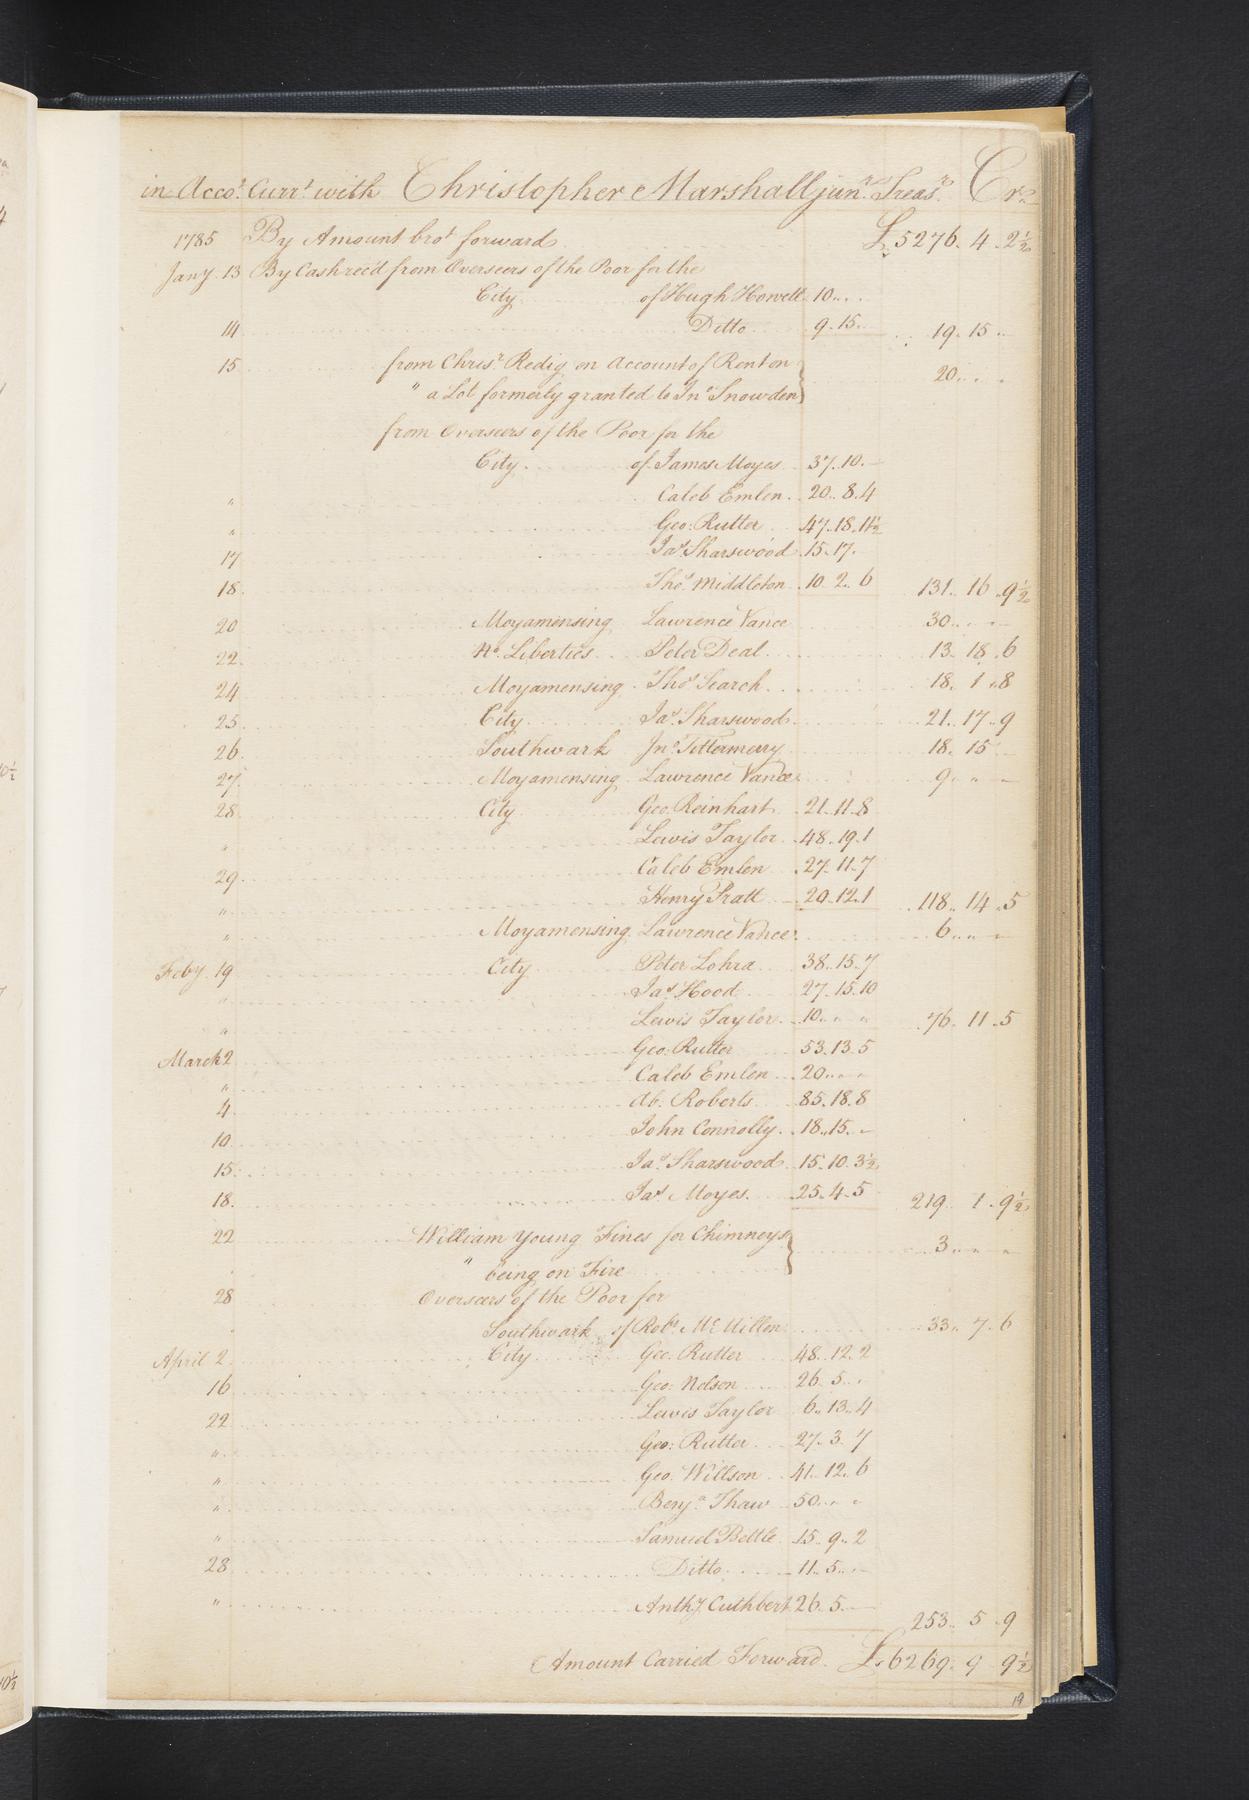 in Acco.t Curr.t with Christopher Marshall jun.r Treas.r Cr.
1785 By Amount bro.t forward £5276. 4. 2½
Jany. 13 By Cash rec'd from Overseers of the Poor for the
City of Hugh Howell 10. . .
14 Ditto 9. 15. 19. 15 ..
15 from Chris.r Redig on Account of Rent on } 20. . .
" a Lot formerly granted to Jn.o Snowden
from Overseers of the Poor for the
City of James Moyes 37. 10. –
" Caleb Emlen 20. 8. 4
" Geo: Rutter 47. 18. 11½
17 Ja.s Sharswood 15. 17.
18 Tho.s Middleton 10. 2. 6 131. 16. 9½
20 Moyamensing Lawrence Vance 30. . –
22 No. Liberties Peter Deal 13. 18. 6
24 Moyamensing Tho.s Search 18. 1. 8
25 City Ja.s Sharswood 21. 17. 9
26 Southwark Jn.o Tittermary 18. 15 –
27 Moyamensing Lawrence Vance 9. " –
28 City Geo. Reinhart 21. 11. 8
" Lewis Taylor 48. 19. 1
29 Caleb Emlen 27. 11. 7
" Henry Pratt 20. 12. 1 118. 14. 5
" Moyamensing Lawrence Vance 6. " "
Feby. 19 City Peter Lohra 38. 15. 7
" Ja.s Hood 27. 15. 10
" Lewis Taylor 10. " " 76. 11. 5
March 2 Geo: Rutter 53. 13. 5
" Caleb Emlen 20. " "
4 Ab. Roberts 85. 18. 8
10 John Connolly 18. 15. –
15 Ja.s Sharswood 15. 10. 3½
18 Ja.s Moyes 25. 4. 5 219. 1. 9½
22 William Young Fines for Chimneys } 3. " "
" being on Fire
28 Overseers of the Poor for
Southwark of Rob.t McMillen 33. 7. 6
April 2 City Geo. Rutter 48. 12. 2
16 Geo: Nelson 26. 5. .
22 Lewis Taylor 6. 13. 4
" Geo: Rutter 27. 3. 7
" Geo. Willson 41. 12. 6
" Benj.a Thaw 50. " "
" Samuel Bettle 15. 9. 2
28 Ditto 11. 5. –
" Anth.y Cuthbert 26. 5. –
253. 5. 9
Amount Carried Forward £6269. 9. 9½
19